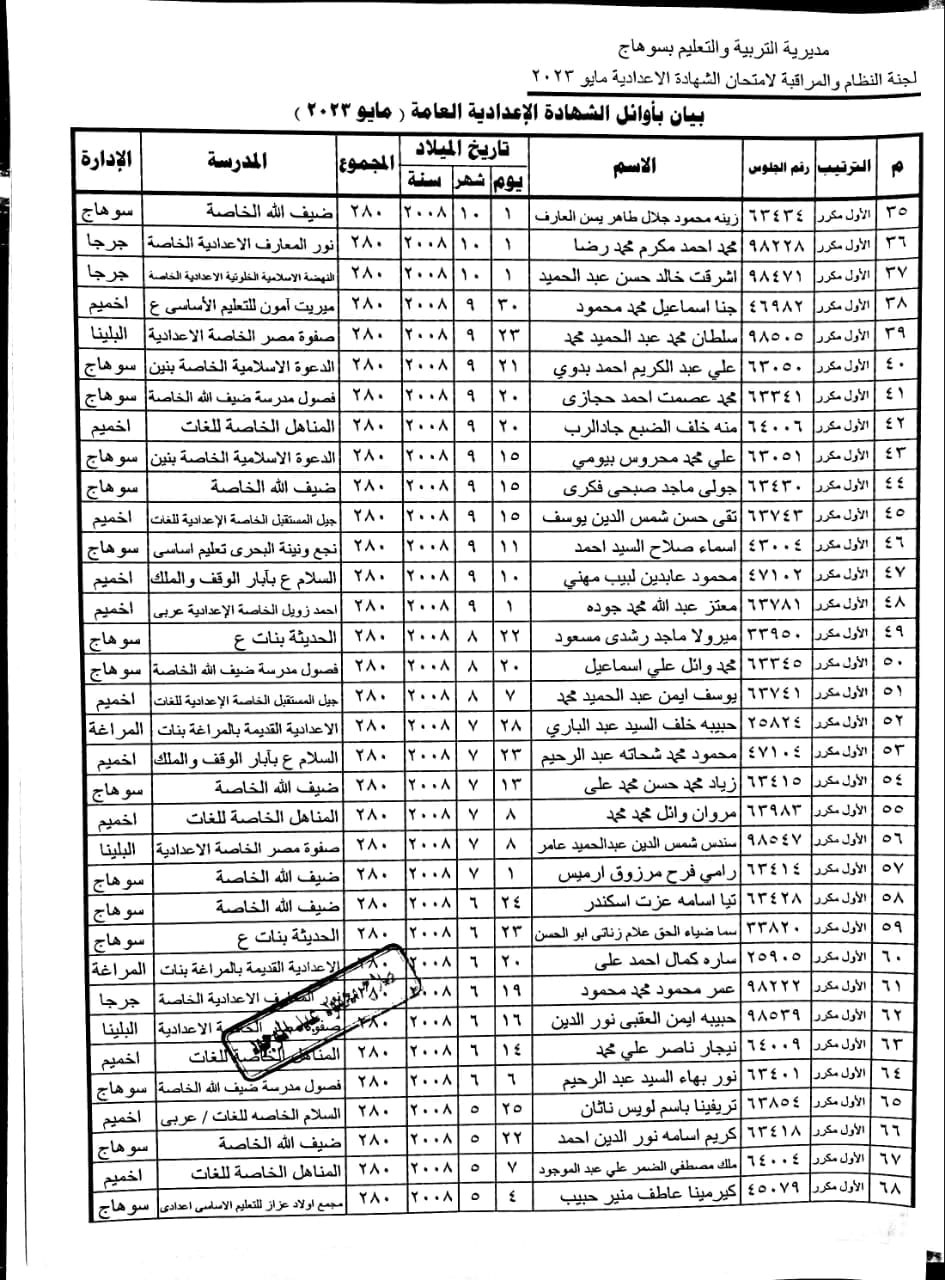 مديرية التربية والتعليم بسوهاج
لجنة النظام والمراقبة لامتحان الشهادة الاعدادية مايو ٢٠٢٣
بيان بأوائل الشهادة الإعدادية العامة ( مايو ٢٠٢٣ )
م الترتيب رقم الجلوس الاسم تاريخ الميلاد المجموع المدرسة الإدارة
يوم شهر سنة
٣٥ الأول مكرر ٦٣٤٣٤ زينه محمود جلال طاهر يسن العارف ١ ١٠ ٢٠٠٨ ٢٨٠ ضيف الله الخاصة سوهاج
٣٦ الأول مكرر ٩٨٢٢٨ محمد احمد مكرم محمد رضا ١ ١٠ ٢٠٠٨ ٢٨٠ نور المعارف الاعدادية الخاصة جرجا
٣٧ الأول مكرر ٩٨٤٧١ اشرقت خالد حسن عبد الحميد ١ ١٠ ٢٠٠٨ ٢٨٠ النهضة الاسلامية الخلوتية الاعدادية الخاصة جرجا
٣٨ الأول مكرر ٤٦٩٨٢ جنا اسماعيل محمد محمود ٣٠ ٩ ٢٠٠٨ ٢٨٠ ميريت آمون للتعليم الأساسى ع اخميم
٣٩ الأول مكرر ٩٨٥٠٥ سلطان محمد عبد الحميد محمد ٢٣ ٩ ٢٠٠٨ ٢٨٠ صفوة مصر الخاصة الاعدادية البلينا
٤٠ الأول مكرر ٦٣٠٥٠ علي عبد الكريم احمد بدوي ٢١ ٩ ٢٠٠٨ ٢٨٠ الدعوة الاسلامية الخاصة بنين سوهاج
٤١ الأول مكرر ٦٣٣٤١ محمد عصمت احمد حجازى ٢٠ ٩ ٢٠٠٨ ٢٨٠ فصول مدرسة ضيف الله الخاصة سوهاج
٤٢ الأول مكرر ٦٤٠٠٦ منه خلف الضبع جادالرب ٢٠ ٩ ٢٠٠٨ ٢٨٠ المناهل الخاصة للغات اخميم
٤٣ الأول مكرر ٦٣٠٥١ علي محمد محروس بيومي ١٥ ٩ ٢٠٠٨ ٢٨٠ الدعوة الاسلامية الخاصة بنين سوهاج
٤٤ الأول مكرر ٦٣٤٣٠ جولى ماجد صبحى فكرى ١٥ ٩ ٢٠٠٨ ٢٨٠ ضيف الله الخاصة سوهاج
٤٥ الأول مكرر ٦٣٧٤٣ تقى حسن شمس الدين يوسف ١٥ ٩ ٢٠٠٨ ٢٨٠ جيل المستقبل الخاصة الإعدادية للغات اخميم
٤٦ الأول مكرر ٤٣٠٠٤ اسماء صلاح السيد احمد ١١ ٩ ٢٠٠٨ ٢٨٠ نجع ونينة البحرى تعليم اساسى سوهاج
٤٧ الأول مكرر ٤٧١٠٢ محمود عابدين لبيب مهني ١٠ ٩ ٢٠٠٨ ٢٨٠ السلام ع بآبار الوقف والملك اخميم
٤٨ الأول مكرر ٦٣٧٨١ معتز عبد الله محمد جوده ١ ٩ ٢٠٠٨ ٢٨٠ احمد زويل الخاصة الإعدادية عربى اخميم
٤٩ الأول مكرر ٣٣٩٥٠ ميرولا ماجد رشدى مسعود ٢٢ ٨ ٢٠٠٨ ٢٨٠ الحديثة بنات ع سوهاج
٥٠ الأول مكرر ٦٣٣٤٥ محمد وائل علي اسماعيل ٢٠ ٨ ٢٠٠٨ ٢٨٠ فصول مدرسة ضيف الله الخاصة سوهاج
٥١ الأول مكرر ٦٣٧٤١ يوسف ايمن عبد الحميد محمد ٧ ٨ ٢٠٠٨ ٢٨٠ جيل المستقبل الخاصة الإعدادية للغات اخميم
٥٢ الأول مكرر ٢٥٨٢٤ حبيبه خلف السيد عبد الباري ٢٨ ٧ ٢٠٠٨ ٢٨٠ الاعدادية القديمة بالمراغة بنات المراغة
٥٣ الأول مكرر ٤٧١٠٤ محمود محمد شحاته عبد الرحيم ٢٣ ٧ ٢٠٠٨ ٢٨٠ السلام ع بآبار الوقف والملك اخميم
٥٤ الأول مكرر ٦٣٤١٥ زياد محمد حسن محمد على ١٣ ٧ ٢٠٠٨ ٢٨٠ ضيف الله الخاصة سوهاج
٥٥ الأول مكرر ٦٣٩٨٣ مروان وائل محمد محمد ٨ ٧ ٢٠٠٨ ٢٨٠ المناهل الخاصة للغات اخميم
٥٦ الأول مكرر ٩٨٥٤٧ سندس شمس الدين عبدالحميد عامر ٨ ٧ ٢٠٠٨ ٢٨٠ صفوة مصر الخاصة الاعدادية البلينا
٥٧ الأول مكرر ٦٣٤١٤ رامي فرح مرزوق ارميس ١ ٧ ٢٠٠٨ ٢٨٠ ضيف الله الخاصة سوهاج
٥٨ الأول مكرر ٦٣٤٢٨ تيا اسامه عزت اسكندر ٢٤ ٦ ٢٠٠٨ ٢٨٠ ضيف الله الخاصة سوهاج
٥٩ الأول مكرر ٣٣٨٢٠ سما ضياء الحق علام زناتى ابو الحسن ٢٣ ٦ ٢٠٠٨ ٢٨٠ الحديثة بنات ع سوهاج
٦٠ الأول مكرر ٢٥٩٠٥ ساره كمال احمد على ٢٠ ٦ ٢٠٠٨ ٢٨٠ الاعدادية القديمة بالمراغة بنات المراغة
٦١ الأول مكرر ٩٨٢٢٢ عمر محمود محمد محمود ١٩ ٦ ٢٠٠٨ ٢٨٠ المعارف الاعدادية الخاصة جرجا
٦٢ الأول مكرر ٩٨٥٣٩ حبيبه ايمن العقبى نور الدين ١٦ ٦ ٢٠٠٨ ٢٨٠ صفوة الخاصة الاعدادية البلينا
٦٣ الأول مكرر ٦٤٠٠٩ نيجار ناصر علي محمد ١٤ ٦ ٢٠٠٨ ٢٨٠ المناهل الخاصة للغات اخميم
٦٤ الأول مكرر ٦٣٤٠١ نور بهاء السيد عبد الرحيم ٦ ٦ ٢٠٠٨ ٢٨٠ فصول مدرسة ضيف الله الخاصة سوهاج
٦٥ الأول مكرر ٦٣٨٥٤ تريفينا باسم لويس ناثان ٢٥ ٥ ٢٠٠٨ ٢٨٠ السلام الخاصه للغات / عربى اخميم
٦٦ الأول مكرر ٦٣٤١٨ كريم اسامه نور الدين احمد ٢٢ ٥ ٢٠٠٨ ٢٨٠ ضيف الله الخاصة سوهاج
٦٧ الأول مكرر ٦٤٠٠٤ ملك مصطفي الضمر علي عبد الموجود ٧ ٥ ٢٠٠٨ ٢٨٠ المناهل الخاصة للغات اخميم
٦٨ الأول مكرر ٤٥٠٧٩ كيرمينا عاطف منير حبيب ٤ ٥ ٢٠٠٨ ٢٨٠ مجمع اولاد عزاز للتعليم الاساسى اعدادى سوهاج